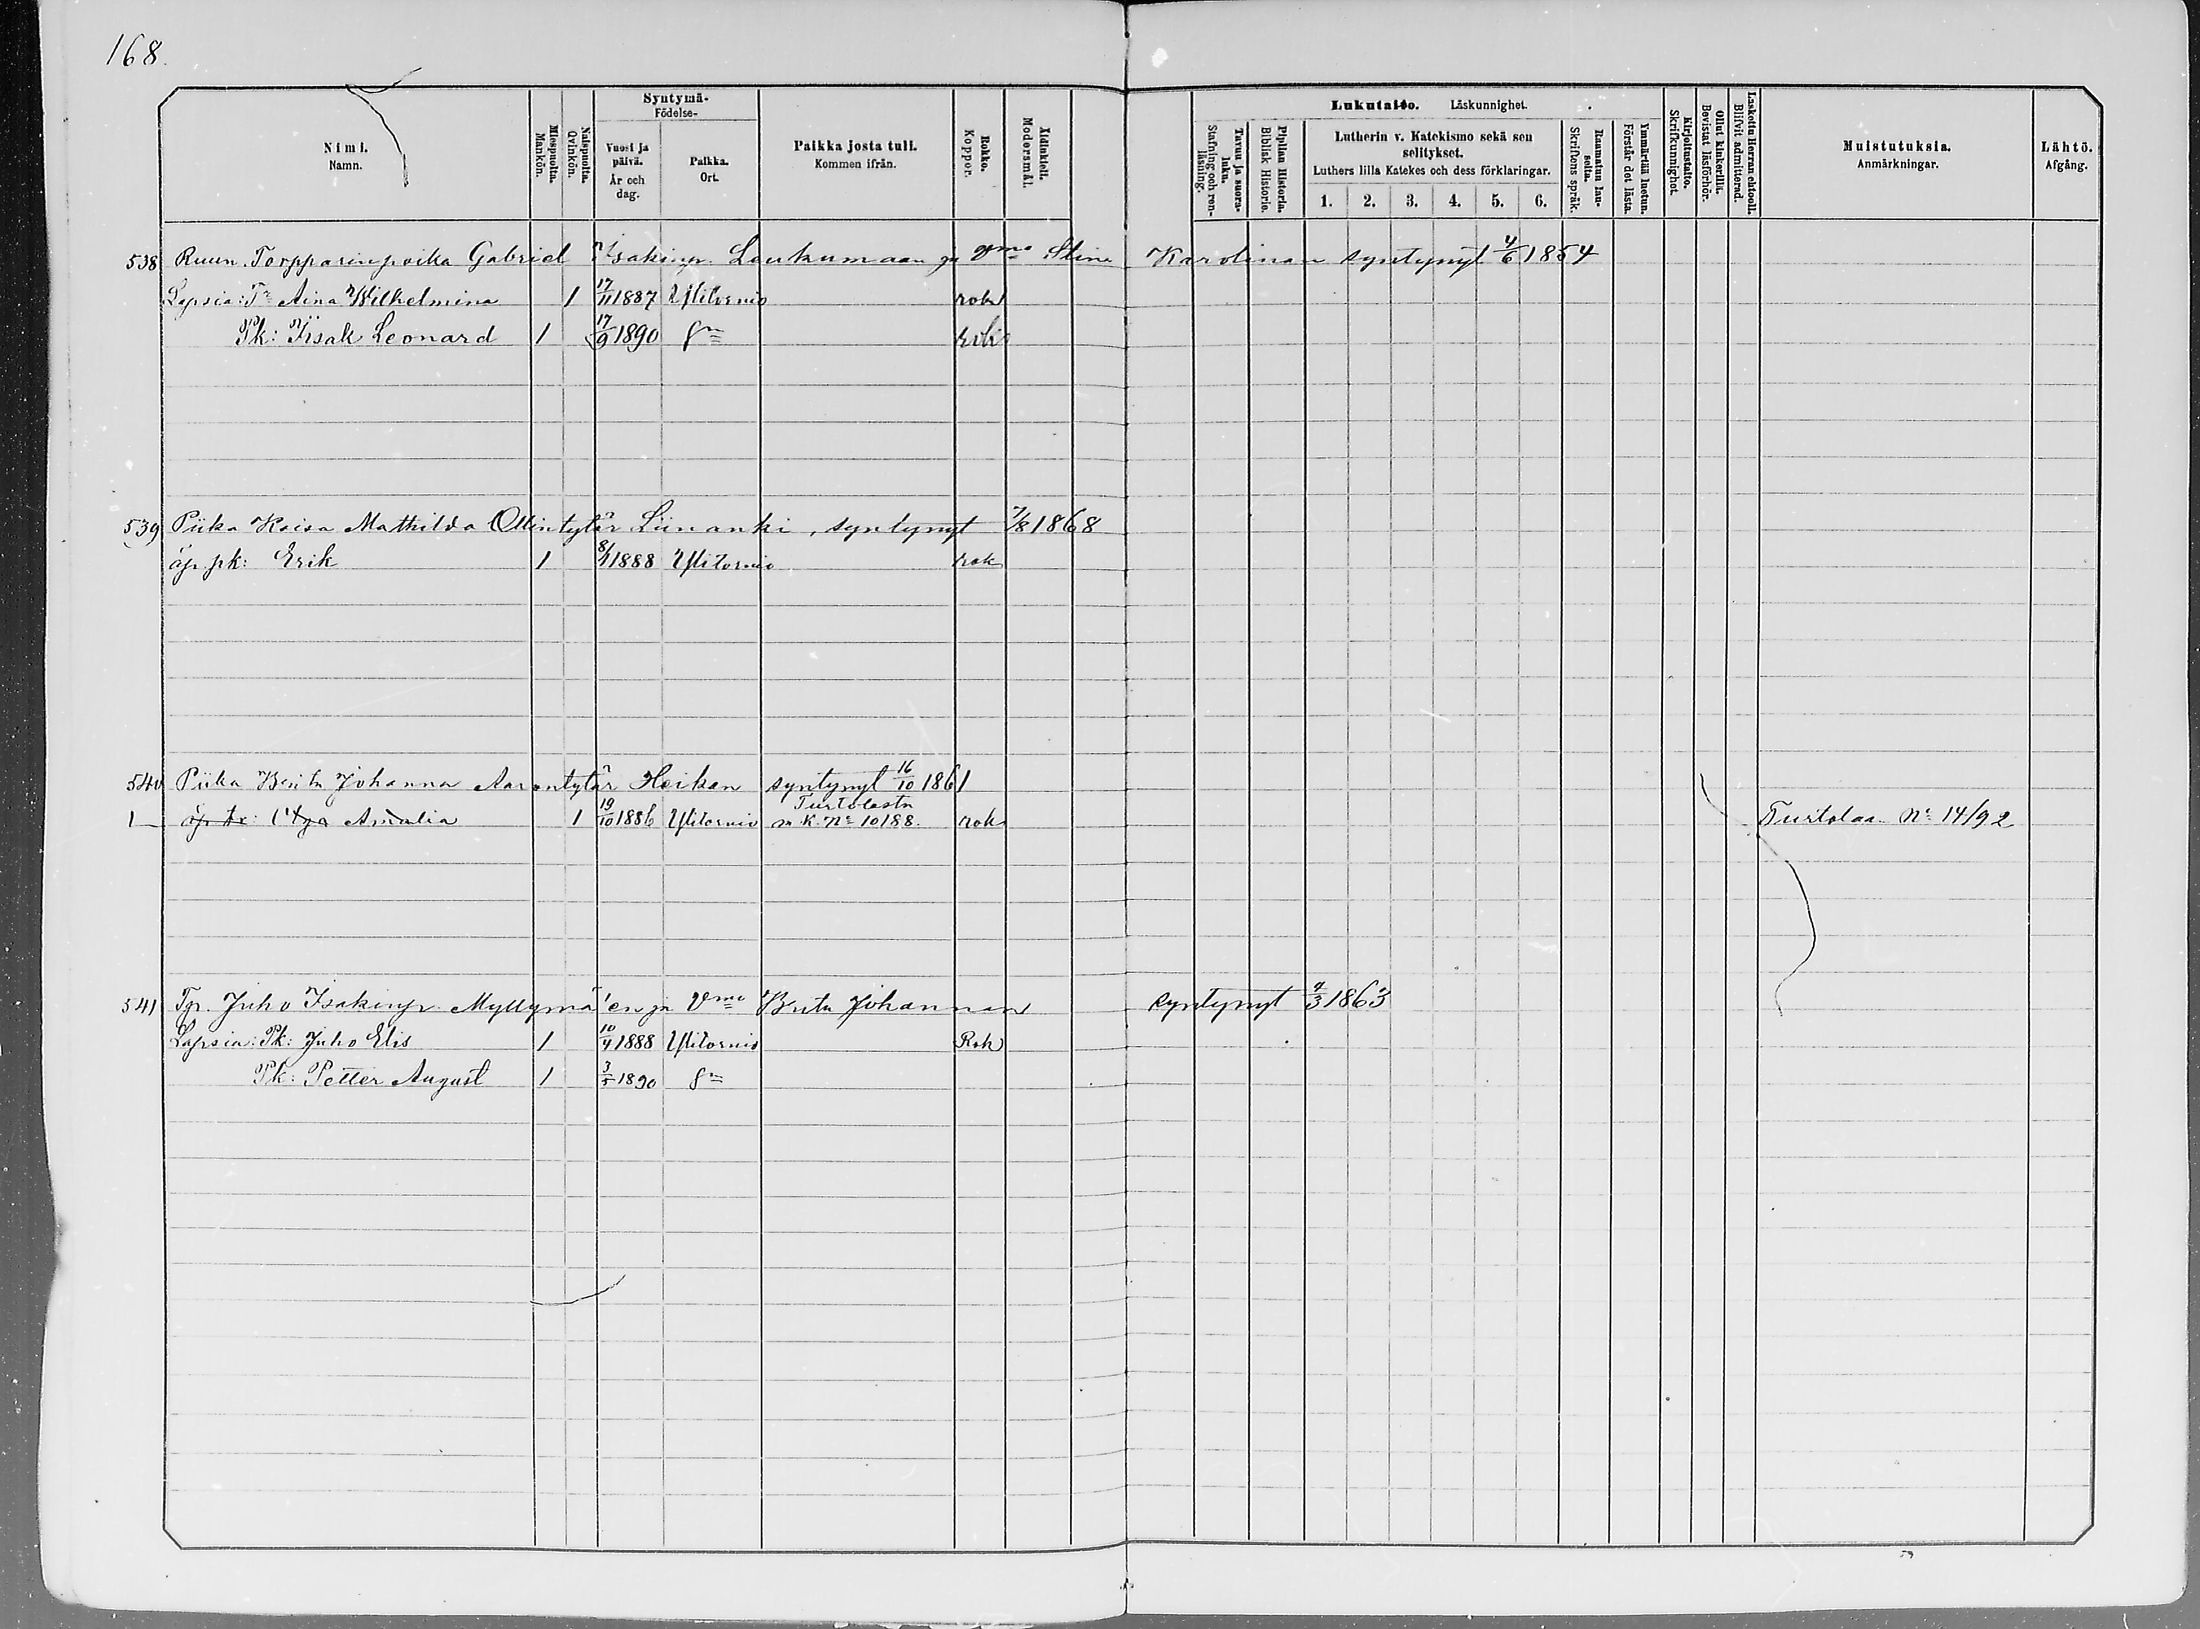 168.
Nimi.
Namn.
Miespuolia.
Mankön.
Naispuolia.
Qvinkön.
Syntymä-
Födelse-
Vuosi ja päivä.
År och dag.
Paikka.
Ort.
Paikka josta tuli.
Kommen ifrån.
Rokko.
Koppor.
Äidinkieli.
Modersmål.
Lukutaito. Läskunnighet.
Tavuu ja suora-luku.
Stafning och ren-läsning.
Piplian Historia.
Biblisk Historie.
Lutherin v. Katekismo sekä sen selitykset.
Luthers lilla Katekes och dess förklaringar.
1. 2. 3. 4. 5. 6.
Raamatun lau-seita.
Skriftens språk.
Ymmärtää luetun.
Förstår det lästa.
Kirjoitustaito.
Skrifkunnighet.
Ollut kinkerillä.
Bevistat läsförhör.
Laskettu Herran ehtooll.
Blifvit admitterad.
Muistutuksia.
Anmärkningar.
Lähtö.
Afgång.
538 Ruun. Torpparinpoika Gabriel Isakinp. Laukumaan ja Vmo Stina Karolinan syntynyt 4/6 1854
Lapsia: Tr Aina Wilhelmina 1 17/11 1887 Ylitornio rok
Pk: Iisak Leonard 1 17/9 1890 Sm rok
539 Piika Kaisa Mathilda Ollintytär Liinanki, syntynyt 7/8 1868
äp. pk: Erik 1 8/1 1888 Ylitornio rok
540 Piika Brita Johanna Aarontytär Heikan syntynyt 16/10 1861
1 äp. tr: Amalia 1 19/10 1886 Ylitornio Turtolasta m. k. No 10/88. rok Turtolaa No 14/92
541 Tp. Juho Isakinp. Myllymä'en ja Vmo Brita Johannan syntynyt 4/3 1863
Lapsia: Pk: Juho Elis 1 10/4 1888 Ylitornio Rok
Pk: Petter August 1 3/5 1890 Sm